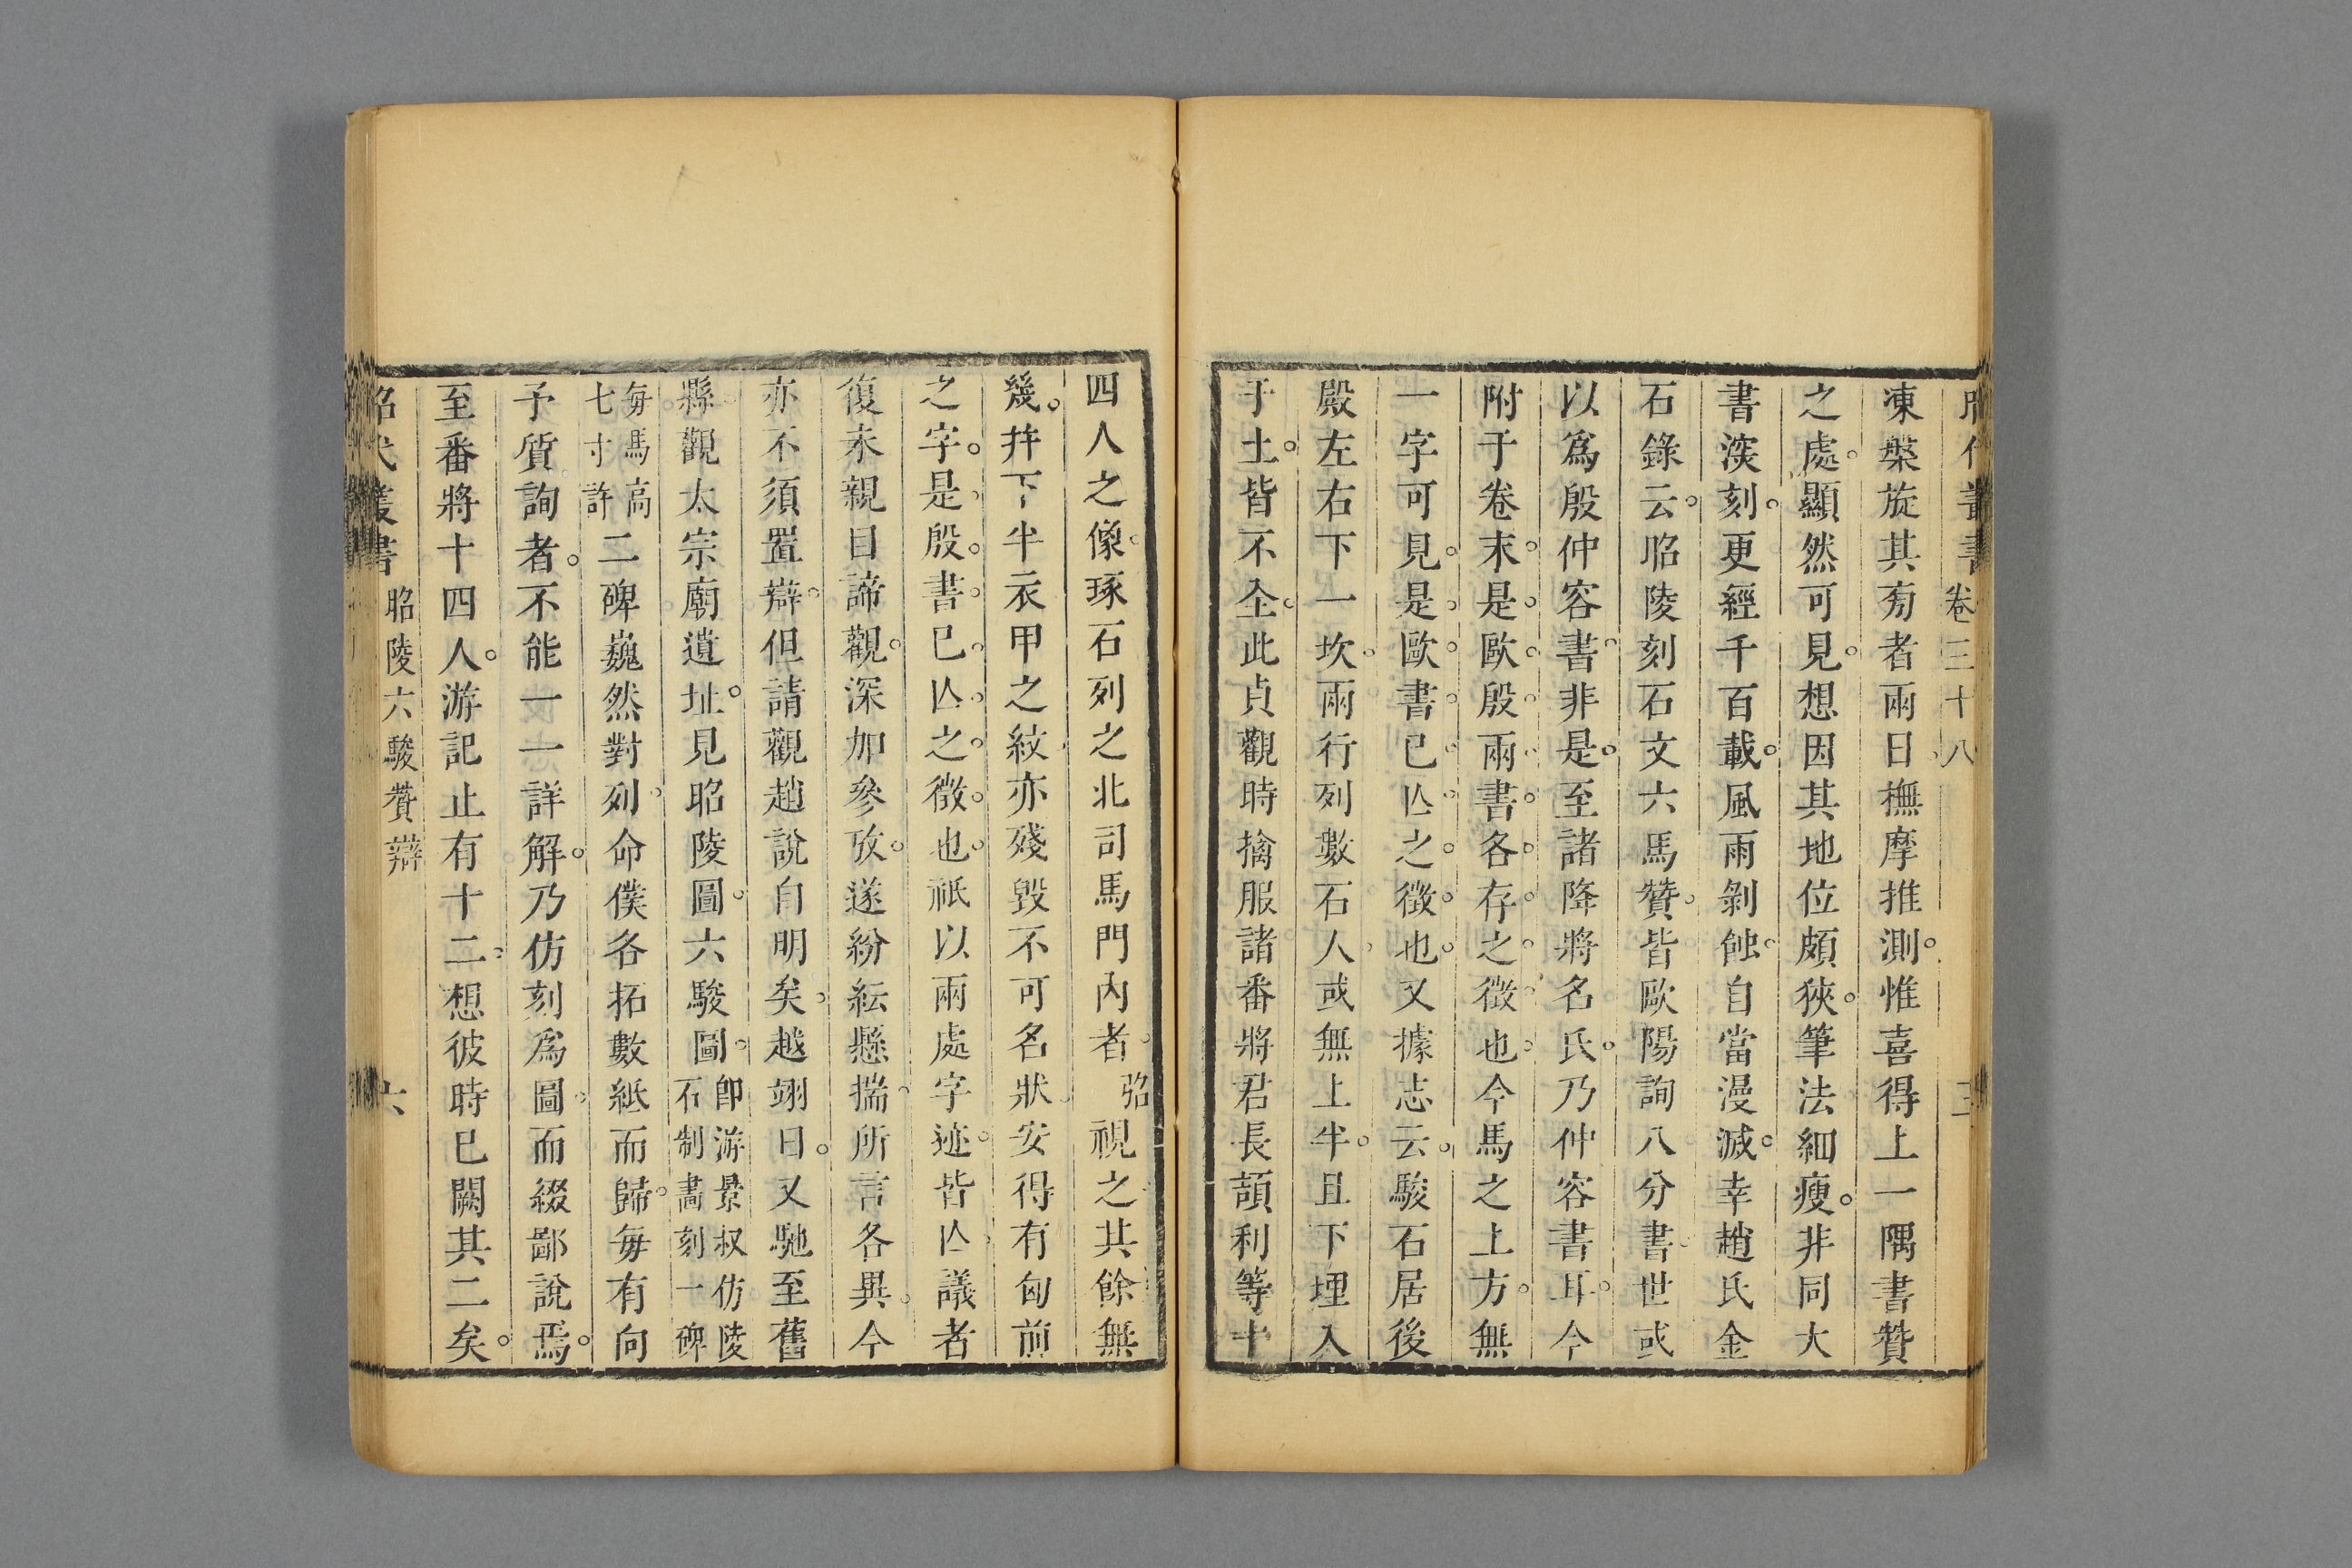 昭代叢書 卷三十八
凍槃旋其㫄者兩日撫摩推測惟喜得上一隅書贊
之處顯然可見想因其地位頗狹筆法細瘦非同大
書深刻更經千百載風雨剝蝕自當漫滅幸趙氏金
石錄云昭陵刻石文六馬贊皆歐陽詢八分書世或
以爲殷仲容書非是至諸降將名氏乃仲容書耳今
附于卷末是歐殷兩書各存之徵也今馬之上方無
一字可見是歐書已亾之徵也又據志云駿石居後
殿左右下一坎兩行列數石人或無上半且下埋入
于土皆不全此貞觀時擒服諸番將君長頡利等十
四人之像琢石列之北司馬門內者予視之其餘無
幾并下半衣甲之紋亦殘毀不可名狀安得有匈前
之字是殷書已亾之徵也祇以兩處字迹皆亾議者
復未親目諦觀深加參攷遂紛紜懸揣所言各異今
亦不須置辯但請觀趙說自明矣越翊日又馳至舊
縣觀太宗廟遺址見昭陵圖六駿圖卽游景叔仿陵石制畵刻一碑
每馬高七寸許二碑巍然對列命僕各拓數紙而歸每有向
予質詢者不能一一詳解乃仿刻爲圖而綴鄙說焉
至番將十四人游記止有十二想彼時已闕其二矣
昭代叢書 昭陵六駿贊辯 六